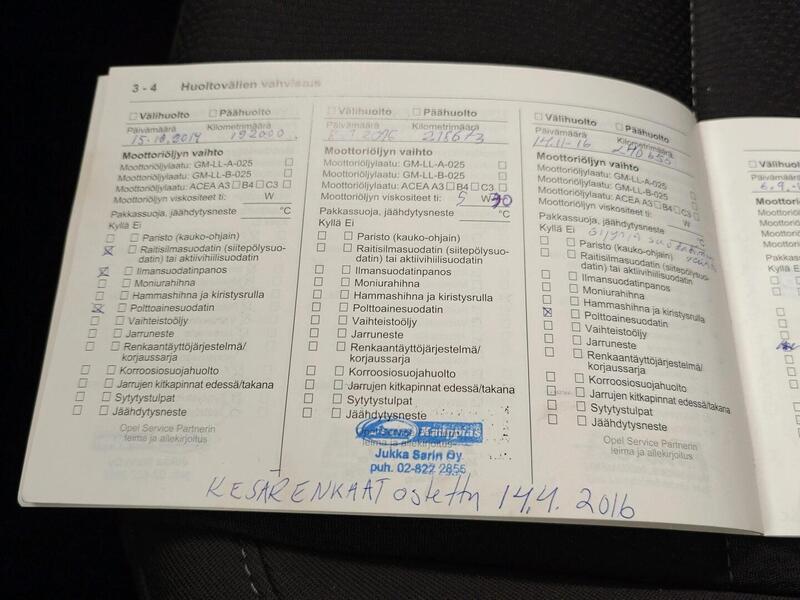 3 - 4 Huoltovälien vahvistus
Välihuolto Päähuolto
Päivämäärä Kilometrimäärä
192000
Moottoriöljyn vaihto
Moottoriöljylaatu: GM-LL-A-025
Moottoriöljylaatu: GM-LL-B-025
Moottoriöljylaatu: ACEA A3 B4 C3
Moottoriöljyn viskositeet ti: W
Pakkassuoja, jäähdytysneste °C
Kyllä Ei
Paristo (kauko-ohjain)
Raitisilmasuodatin (siitepölysuo-
datin) tai aktiivihiilisuodatin
Ilmansuodatinpanos
Moniurahihna
Hammashihna ja kiristysrulla
Polttoainesuodatin
Vaihteistoöljy
Jarruneste
Renkaantäyttöjärjestelmä/
korjaussarja
Korroosiosuojahuolto
Jarrujen kitkapinnat edessä/takana
Sytytystulpat
Jäähdytysneste
Opel Service Partnerin
leima ja allekirjoitus
Välihuolto Päähuolto
Päivämäärä Kilometrimäärä
Moottoriöljyn vaihto
Moottoriöljylaatu: GM-LL-A-025
Moottoriöljylaatu: GM-LL-B-025
Moottoriöljylaatu: ACEA A3 B4 C3
Moottoriöljyn viskositeet ti: 5 W30
Pakkassuoja, jäähdytysneste °C
Kyllä Ei
Paristo (kauko-ohjain)
Raitisilmasuodatin (siitepölysuo-
datin) tai aktiivihiilisuodatin
Ilmansuodatinpanos
Moniurahihna
Hammashihna ja kiristysrulla
Polttoainesuodatin
Vaihteistoöljy
Jarruneste
Renkaantäyttöjärjestelmä/
korjaussarja
Korroosiosuojahuolto
Jarrujen kitkapinnat edessä/takana
Sytytystulpat
Jäähdytysneste
Kauppias
leima ja allekirjoitus
Jukka Sarin Oy
puh. 02-822 2855
Välihuolto Päähuolto
Päivämäärä Kilometrimäärä
14.11-16 240650
Moottoriöljyn vaihto
Moottoriöljylaatu: GM-LL-A-025
Moottoriöljylaatu: GM-LL-B-025
Moottoriöljylaatu: ACEA A3 B4 C3
Moottoriöljyn viskositeet ti: W
Pakkassuoja, jäähdytysneste °C
Kyllä Ei
Paristo (kauko-ohjain)
Raitisilmasuodatin (siitepölysuo-
datin) tai aktiivihiilisuodatin
Ilmansuodatinpanos
Moniurahihna
Hammashihna ja kiristysrulla
Polttoainesuodatin
Vaihteistoöljy
Jarruneste
Renkaantäyttöjärjestelmä/
korjaussarja
Korroosiosuojahuolto
Jarrujen kitkapinnat edessä/takana
Sytytystulpat
Jäähdytysneste
Opel Service Partnerin
leima ja allekirjoitus
KESÄRENKAAT ostettu 14.4. 2016
Välihuolto
Päivämäärä
6.9.
Kyllä E